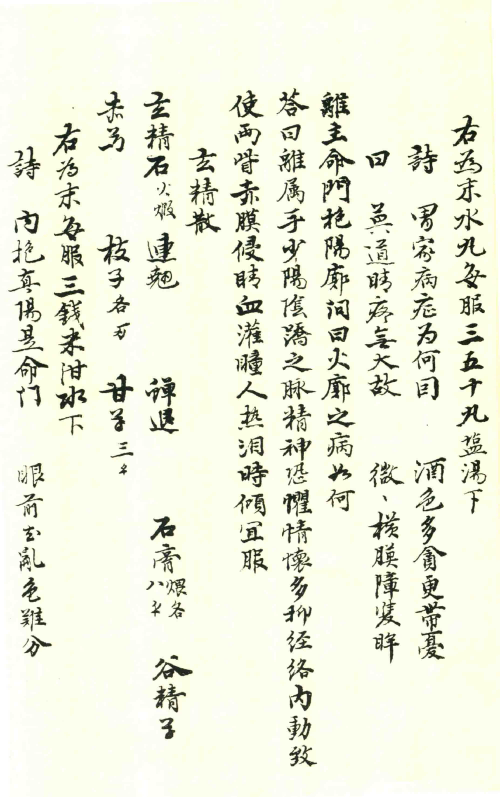 右为末水丸每服三五十丸塩湯下
詩 胃家病症为何因 酒色多貪更带憂
曰 莫道睛疼無大故 微、横膜障雙眸
離主命門抱陽廓问曰火廓之病如何
答曰離属手少陽陰蹻之脉精神恐懼情懷多抑经络内動致
使两眥赤膜侵睛血灌瞳人热泪時傾宜服
玄精散
玄精石火煅 連翘 蟬退 石膏煨各八干 谷精子
赤芍 枝子各万 甘草三干
右为末每服三錢米泔水下
詩 内抱真陽是命门 眼前赤亂色難分